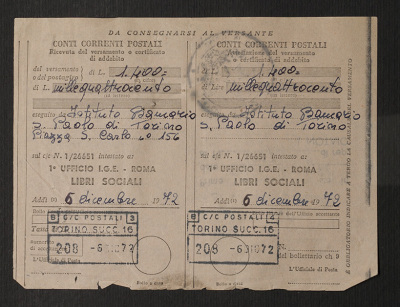 DA CONSEGNARSI AL VERSANTE
CONTI CORRENTI POSTALI
Ricevuta del versamento o certificato
di addebito
del versamento
o del postagiro
di L. 1.400=
di L. millequattrocento
eseguito da Istituto Bancario
S. Paolo di Torino
Piazza S. Carlo n° 156
sul c/c N. 1/26651 intestato a:
1° UFFICIO I.G.E. - ROMA
LIBRI SOCIALI
Addì 6 dicembre 1972
B C/C POSTALI 3
TORINO SUCC. 16
208 -6 DIC 72
Bollo a data
CONTI CORRENTI POSTALI
Attestazione del versamento
o certificato di addebito
di L. 1.400=
di L. millequattrocento
eseguito da Istituto Bancario
S. Paolo di Torino
sul c/c N. 1/26651 intestato a:
1° UFFICIO I.G.E. - ROMA
LIBRI SOCIALI
Addì 6 dicembre 1972
Bollo lineare dell'Ufficio accettante
B C/C POSTALI
TORINO SUCC. 16
208 -6 DIC 72
del bollettario ch 9
L'Ufficiale di Posta
L'Ufficiale di Posta
Bollo a data